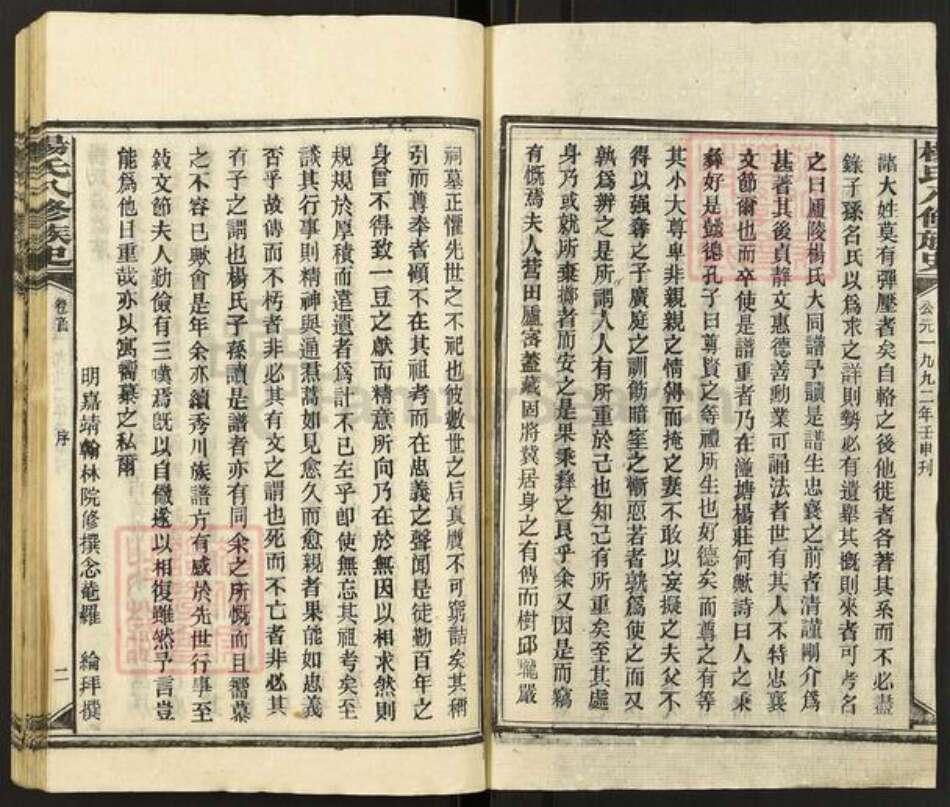 楊氏八修族史
公元一九九二年壬申刊
諸大姓莫有彈壓者矣自輅之後他徙者各著其系而不必盡
錄子孫名氏以爲求之詳則勢必有遺舉其慨則來者可考名
之曰廬陵楊氏大同譜予讀是譜生忠襄之前者清謹剛介爲
甚著其後貞靜文惠德善動業可誦法者世有其人不特忠襄
文節爾也而卒使是譜重者乃在湴塘楊莊何歟詩曰人之秉
彝好是懿德孔子曰尊賢之等禮所生也好德矣而尊之有等
其小大尊卑非親親之情得而掩之妻不敢以妄擬之夫父不
得以强奪之子廣庭之訓飭暗室之慚恧若者孰爲使之而又
孰爲辨之是所謂人人有所重於己也知己有所重矣至其處
身乃或就所棄擲者而安之是果秉彝之良乎余又因是而竊
有慨焉夫人營田廬審蓋藏固將冀居身之有傳而樹邱壠嚴
祠墓正懼先世之不祀也彼數世之后真贋不可窮詰矣其稱
引而尊奉者顧不在其祖考而在忠義之聲聞是徒勤百年之
身曾不得致一豆之獻而精意所向乃在於無因以相求然則
規規於厚積而遣遺者爲計不已左乎卽使無忘其祖考矣至
談其行事則精神與通焄蒿如見愈久而愈親者果能如忠義
否乎故傳而不朽者非必其有文之謂也死而不亡者非必其
有子之謂也楊氏子孫讀是譜者亦有同余之所慨而且嚮慕
之不容已歟會是年余亦續秀川族譜方有感於先世行事至
敍文節夫人勤儉有三嘆焉旣以自儆遂以相復雖然予言豈
能爲他日重哉亦以寓嚮慕之私爾
明嘉靖翰林院修撰念菴羅 綸拜撰
楊氏八修族史
卷首
序
二